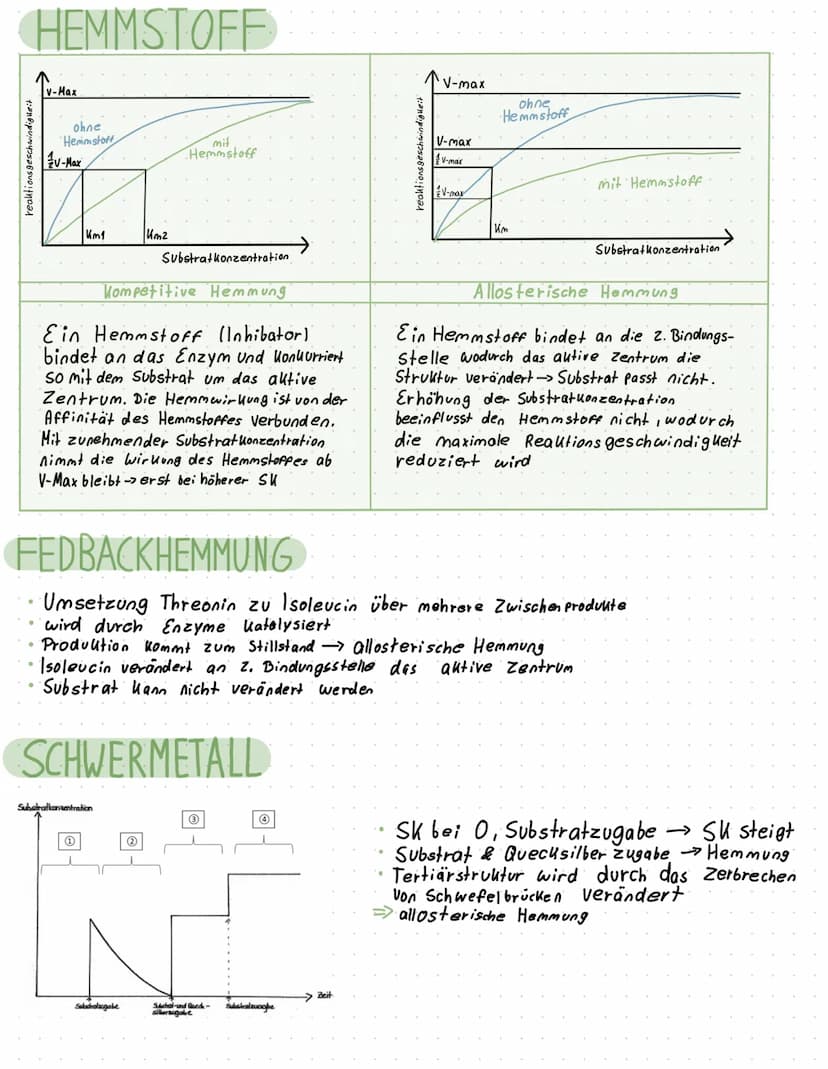 HEMMSTOFF
reaktionsgeschwindigkeit
V-Max
ohne
Hemmstoff
mit
Hemmstoff
½V-Max
Km1
Km2
Substratkonzentration
reaktionsgeschwindigkeit
V-max
ohne
Hemmstoff
V-max
½V-max
½V-max
mit Hemmstoff
Km
Substratkonzentration
Kompetitive Hemmung
Allosterische Hemmung
Ein Hemmstoff (Inhibator)
bindet an das Enzym und konkurriert
so mit dem Substrat um das aktive
Zentrum. Die Hemmwirkung ist von der
Affinität des Hemmstoffes verbunden.
Mit zunehmender Substratkonzentration
nimmt die Wirkung des Hemmstoffes ab
V-Max bleibt → erst bei höherer SK
Ein Hemmstoff bindet an die 2. Bindungs-
stelle wodurch das aktive Zentrum die
Struktur verändert → Substrat passt nicht.
Erhöhung der Substratkonzentration
beeinflusst den Hemmstoff nicht, wodurch
die maximale Reaktionsgeschwindigkeit
reduziert wird
FEDBACKHEMMUNG
• Umsetzung Threonin zu Isoleucin über mehrere Zwischenprodukte
• wird durch Enzyme katalysiert
• Produktion kommt zum Stillstand → allosterische Hemmung
• Isoleucin verändert an 2. Bindungsstelle das aktive Zentrum
• Substrat kann nicht verändert werden
SCHWERMETALL
Substratkonzentration
①
②
③
④
Zeit
Substratzugabe
Substrat- und Queck-
silberzugabe
Substratzugabe
• SK bei 0, Substratzugabe → SK steigt
• Substrat & Quecksilber zugabe → Hemmung
• Tertiärstruktur wird durch das Zerbrechen
von Schwefelbrücken verändert
⇒ allosterische Hemmung